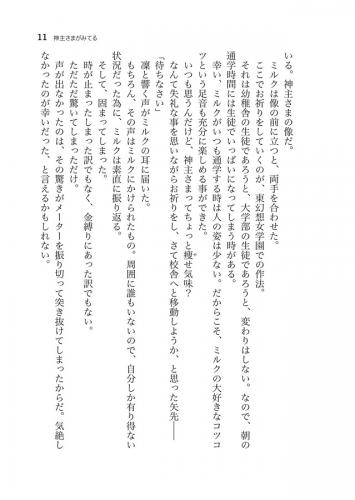 11 神主さまがみてる
いる。神主さまの像だ。
ミルクは像の前に立つと、両手を合わせた。
ここでお祈りをしていくのが、東幻想女学園での作法。
それは幼稚舎の生徒であろうと、大学部の生徒であろうと、変わりはしない。なので、朝の
通学時間には生徒でいっぱいになってしまう時がある。
幸い、ミルクがいつも通学する時は人の姿は少ない。だからこそ、ミルクの大好きなコツコ
ツという足音も充分に楽しめる事ができた。
いつも思うんだけど、神主さまってちょっと痩せ気味？
なんて失礼な事を思いながらお祈りをし、さて校舎へと移動しようか、と思った矢先――
「待ちなさい」
凛と響く声がミルクの耳に届いた。
もちろん、その声はミルクにかけられたもの。周囲に誰もいないので、自分しか有り得ない
状況だった為に、ミルクは素直に振り返る。
そして、固まってしまった。
時が止まってしまった訳でもなく、金縛りにあった訳でもない。
ただただ驚いてしまっただけ。
声が出なかったのは、その驚きがメーターを振り切って突き抜けてしまったからだ。気絶し
なかったのが幸いだった、と言えるかもしれない。